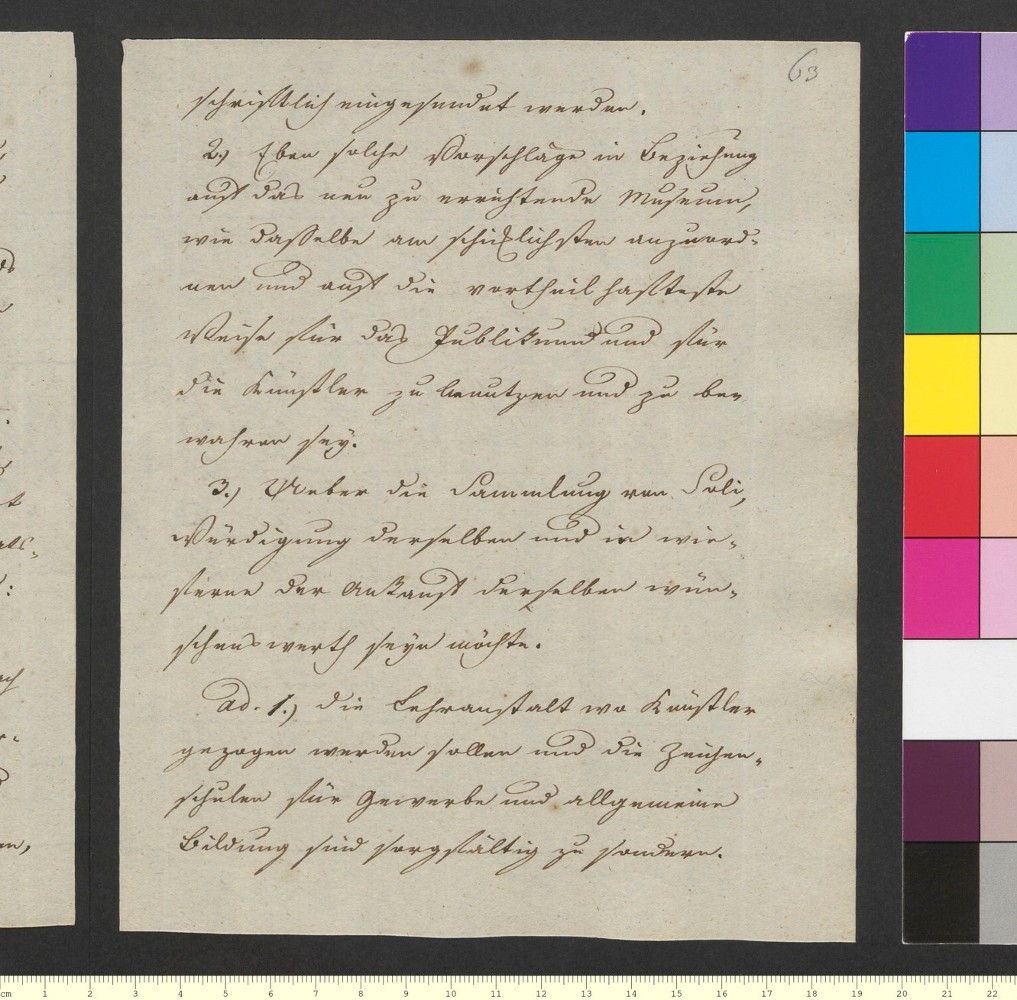 63
schriftlich eingesendet werden.
2.) Eben solche Vorschläge in Beziehung
auf das neu zu errichtende Museum,
wie dasselbe am schicklichsten anzuord-
nen und auf die vortheilhafteste
Weise für das Publikum und für
die Künstler zu benutzen und zu be-
wahren sey.
3.) Ueber die Sammlung von Soli,
Würdigung derselben und in wie-
ferne der Ankauf derselben wün-
schenswerth seyn möchte.
ad. 1.) die Lehranstalt wo Künstler
gezogen werden sollen und die Zeichen-
schulen für Gewerbe und allgemeine
Bildung sind sorgfältig zu sondern.
cm 1 2 3 4 5 6 7 8 9 10 11 12 13 14 15 16 17 18 19 20 21 22